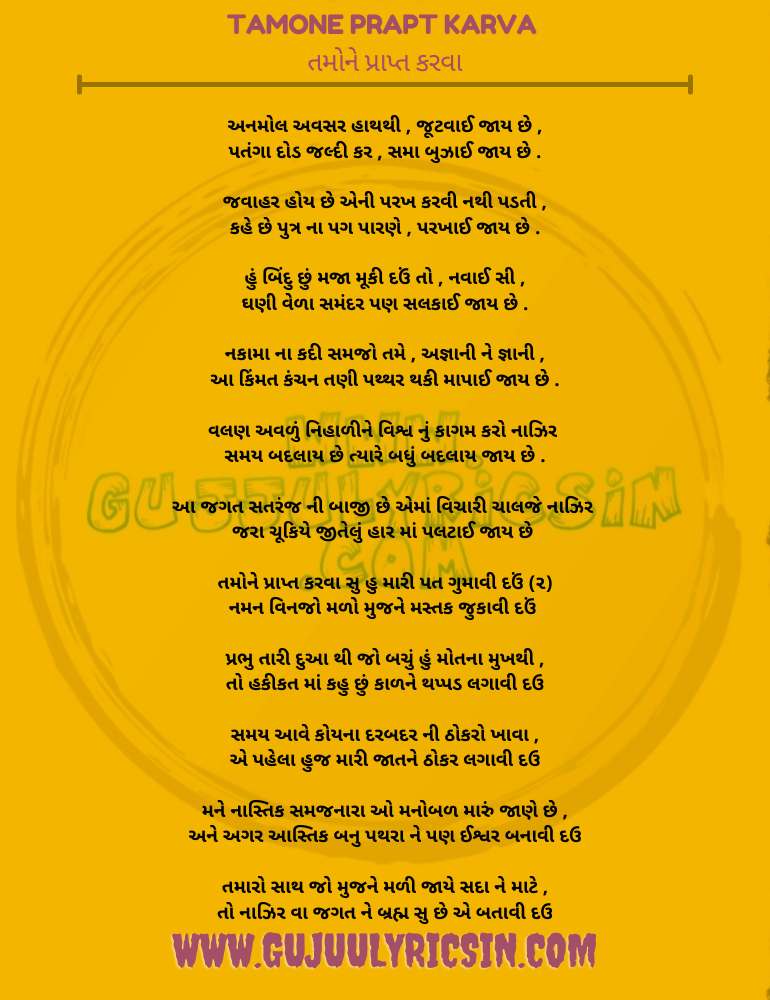 TAMONE PRAPT KARVA
તમોને પ્રાપ્ત કરવા
અનમોલ અવસર હાથથી , જૂટવાઈ જાય છે ,
પતંગા દોડ જલ્દી કર , સમા બુઝાઈ જાય છે .
જવાહર હોય છે એની પરખ કરવી નથી પડતી ,
કહે છે પુત્ર ના પગ પારણે , પરખાઈ જાય છે .
હું બિંદુ છું મજા મૂકી દઉં તો , નવાઈ સી ,
ઘણી વેળા સમંદર પણ સલકાઈ જાય છે .
નકામા ના કદી સમજો તમે , અજ્ઞાની ને જ્ઞાની ,
આ કિંમત કંચન તણી પથ્થર થકી માપાઈ જાય છે .
વલણ અવળું નિહાળીને વિશ્વ નું કાગમ કરો નાઝિર
સમય બદલાય છે ત્યારે બધું બદલાય જાય છે .
આ જગત સતરંજ ની બાજી છે એમાં વિચારી ચાલજે નાઝિર
જરા ચૂકિયે જીતેલું હાર માં પલટાઈ જાય છે
તમોને પ્રાપ્ત કરવા સુ હુ મારી પત ગુમાવી દઉં (૨)
નમન વિનજો મળો મુજને મસ્તક જુકાવી દઉં
પ્રભુ તારી દુઆ થી જો બચું હું મોતના મુખથી ,
તો હકીકત માં કહુ છું કાળને થપ્પડ લગાવી દઉ
સમય આવે કોયના દરબદર ની ઠોકરો ખાવા ,
એ પહેલા હુજ મારી જાતને ઠોકર લગાવી દઉ
મને નાસ્તિક સમજનારા ઓ મનોબળ મારું જાણે છે ,
અને અગર આસ્તિક બનુ પથરા ને પણ ઈશ્વર બનાવી દઉ
તમારો સાથ જો મુજને મળી જાયે સદા ને માટે ,
તો નાઝિર વા જગત ને બ્રહ્મ સુ છે એ બતાવી દઉ
WWW.GUJUULYRICSIN.COM
WWW.
GUJJULYRICSIN
.COM